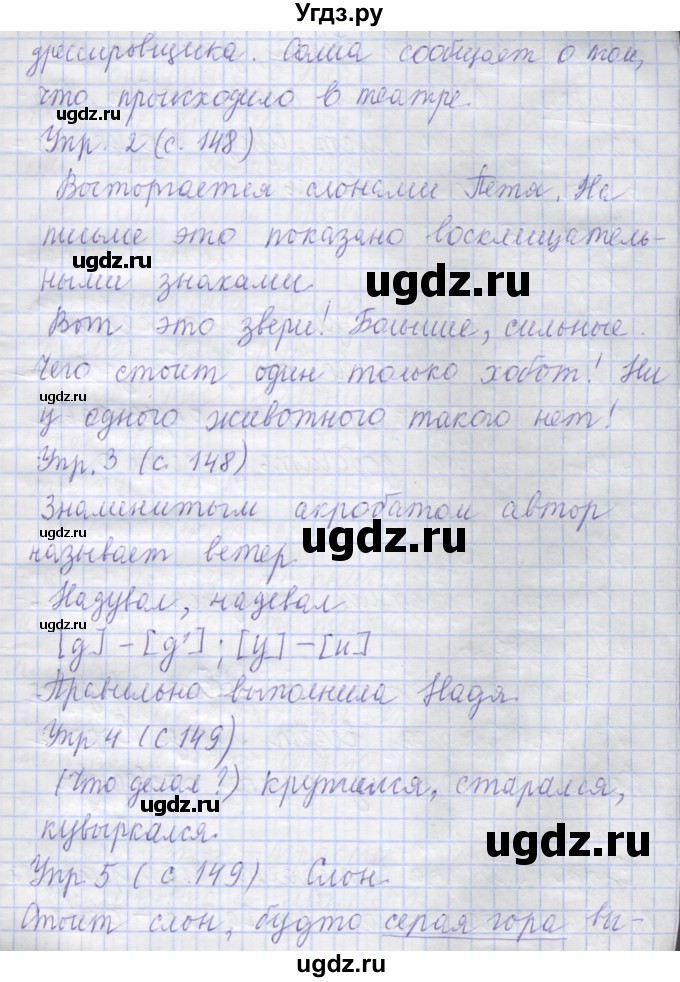 Угдз.ру
дрессировщика. Саша сообщает о том,
что происходило в театре.
ugdz.ru
Упр. 2 (с. 148)
Восторгается слонами Петя. На
письме это показано восклицатель-
ugdz.ru
ными знаками
ugdz.ru
Вот это звери! Большие, сильные.
Чего стоит один только хобот! Ни
ugdz.ru
у одного животного такого нет!
Упр. 3 (с 148)
Знаменитым акробатом автор
ugdz.ru
называет ветер
ugdz.ru
Надувал, надевал
ugdz.ru
[д] - [д']; [у] - [и]
Правильно выполнила Надя.
Упр 4 (с 149)
(Что делал?) крутился, старался,
ugdz.ru
кувыркался.
ugdz.ru
Упр 5 (с 149) Слон.
Стоит слон, будто серая гора вы-
ugdz.ru
ugdz.ru